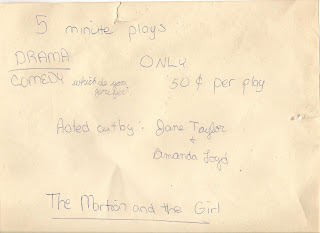 5 minute plays
DRAMA
COMEDY which do you
ONLY
50 ¢ per play
Acted out by: Jane Taylor
+
Amanda Loyd
The Martian and the Girl